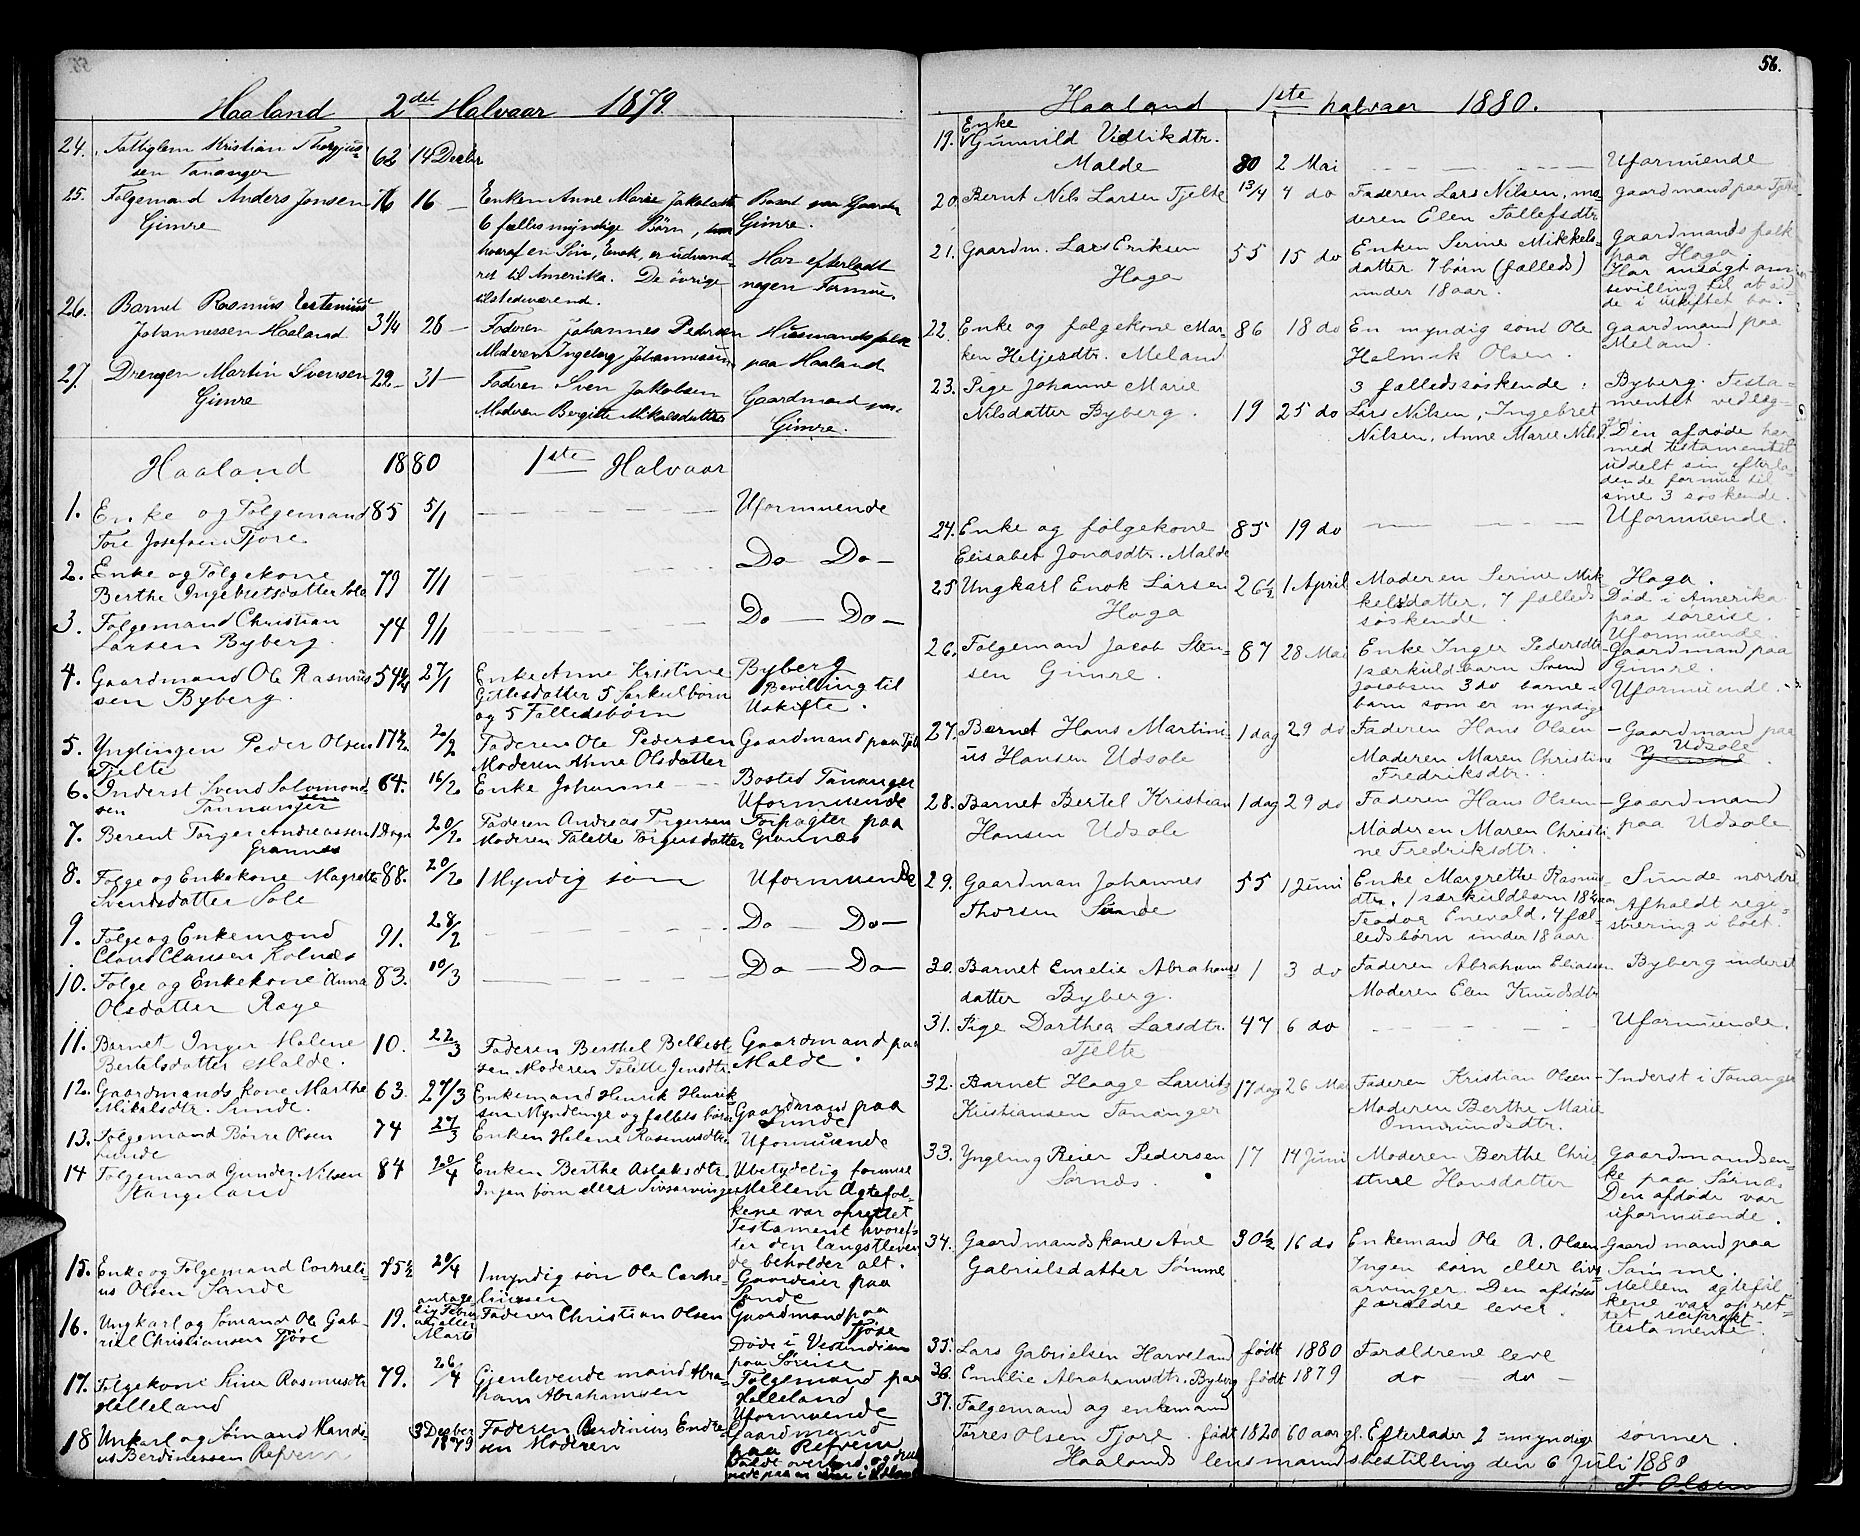 Haaland 2det Halvaar 1879.
24. Fattiglem Kristian Thorgius- 62 14 Decbr
sen Tananger
25. Følgemand Anders Jonsen 76 16 — Enken Anne Marie Jakobsdtr Bosat paa Gaarden
Gimre 6 fælles myndige Børn, Gimre.
hvoraf en Søn, Enok, er udvand- Har efterladt
ret til Amerika. De øvrige nogen Formue.
tilstedeværend.
26. Barnet Rasmus Testenius 3 1/4 28 — Faderen Johannes Pedersen Husmandsfolk
Johannessen Haaland Moderen Ingeborg Johannesen paa Haaland
27. Drengen Martin Svensen 22 — 31 — Faderen Sven Jakobsen Gaardmand paa
Gimre Moderen Bergitte Mikalsdatter Gimre.
Haaland 1880 1ste Halvaar
1. Enke og Følgemand 85 5/1 — — — Uformuende
Tore Josefsen Tjore
2. Enke og Følgekone 79 7/1 — — — Do — Do —
Berthe Ingebretsdatter Sola
3. Følgemand Christian 74 9/1 — — — Do — Do —
Larsen Byberg.
4. Gaardmand Ole Rasmus 54 3/4 27/1 Enke Anne Kristine Byberg
sen Byberg. Gitlesdatter 5 Særkulbørn Bevilling til
og 5 Felledsbørn Uskifte.
5. Ynglingen Peder Olsen 17 1/2 2/2 Faderen Ole Pedersen Gaardmand paa Tjelt
Tjelte Moderen Anne Olsdatter
6. Inderst Svend Salomond 64. 16/2 Enke Johanne — — Bosted Tananger
sen Tannanger Uformuende
7. Berent Torger Andreassen 1 Dogn 20/2 Faderen Andreas Torgersen Forpagter paa
Grannes Moderen Talette Torgersdatter Grannes
8. Følge og Enkekone Magrethe 88. 20/2 1 Myndig søn Uformuende
Svendsdatter Sole
9. Følge og Enkemand 91. 28/2 — — — Do — Do —
Claus Clausen Kolnes
10. Følge og Enkekone Anna 83. 10/3 — — — Do — Do —
Olsdatter Ræge
11. Bernet Inger Malene 10. 22/3 Faderen Berthel Bellest Gaardmand paa
Bertelsdatter Malde. sen Moderen Talette Jensdtr. Malde.
12. Gaardmands kone Marthe 63. 27/3 Enkemand Henrik Henrik
Mikalsdtr. Sunde. sen Myndlinge og fælles børn Gaardmand paa
Sunde
13. Følgemand Børre Olsen 74 27/3 Enken Helene Rasmusdtr. Uformuende
Sunde
14 Følgemand Gunder Nilsen 84 20/4 Enken Berthe Aslaksdtr. Ubetydelig formue
Stangeland Ingen børn eller Livsarvinger Mellem Ægtefol-
kene var oprettet
Testament hvoref-
ter den længstleven
de beholder alt.
15. Enke og Følgemand Corneli- 75 1/2 20/4 1 myndig søn Ole Corne- Gaardeier paa
us Olsen Sunde liussen Sunde
16. Ungkarl og Sømand Ole Gab- 19. antage Faderen Christian Olsen Gaardmand paa
riel Christiansen Tjøre lig Febru Tjøre
ar eller Døde i Vestindien
Marts paa Søreise
17. Følgekone Siren Rasmusdtr 79. 26/4 Gjenlevende mand Abra- Følgemand paa
Helleland ham Abrahamsen Helleland
Uformuende
18 Unkarl og Sømand Handi- 3 Decber Faderen Berdinius Endre- Gaardmand
us Berdinessen Refvem 1879 sen Moderen paa Refvem
Faldt overbord og druk
nede paa en
56.
Haaland 1ste halvaar 1880.
19. Enke
Gunnild Vedlikdtr.
Malde 80 2 Mai — — — Uformuende
20. Bernt Nils Larsen Tjelte 13/4 4 do Faderen Lars Nilsen, mo- gaardmand paa Tjelte
deren Elen Tollefsdtr
21. Gaardm. Lars Eriksen 55 15 do Enken Serine Mikkels- gaardmandsfolk
Haga datter 7 børn (fælleds) paa Haga.
under 18 aar. Har ansøgt om
bevilling til at sid
de i uskiftet bo.
22. Enke og følgekone Mar- 86 18 do En myndig sønn Ole gaardmand paa
ken Heljesdtr. Meland Helmik Olsen. Meland.
23. Pige Johanne Marie 3 fælledssøskende: Byberg. Testa-
Nilsdatter Byberg. 19 25 do Lars Nilsen, Ingebret mentet vedlæg-
Nilsen, Anne Marie Nilsd. Den afdøde har
med testamentet
uddelt sin efterla-
dende formue til
sine 3 søskende.
24. Enke og følgekone 85 19 do — — — Uformuende.
Elisabet Jonasdtr. Malde
25 Ungkarl Enok Larsen 26 1/2 1 April Moderen Serine Mik- Haga.
Haga kelsdatter, 7 fælleds Død i Amerika
søskende. paa søreise.
Uformuende.
26. Følgemand Jacob Sten- 87 28 Mai Enke Inger Pedersdtr. Gaardmand paa
sen Gimre. 1 særkuldbarn Svend Gimre.
Jacobsen 3 do barne- Uformuende.
barn som er myndige
27. Barnet Hans Martini 1 dag 29 do Faderen Hans Olsen — Gaardmand paa
us Hansen Udsole Moderen Maren Christine Udsole
Fredriksdtr.
28. Barnet Bertel Kristian 1 dag 29 do Faderen Hans Olsen — Gaardmand
Hansen Udsole Moderen Maren Christi- paa Udsole
ne Fredriksdtr.
29. Gaardman Johannes 55 1 Juni Enke Margrethe Rasmus- Sunde nordre
Thorsen Sunde dtr. 1 særkuldbarn 18 1/2 aar Afholdt regi-
Teodor Enevald, 4 fæl- strering i boet.
ledsbørn under 18 aar.
30. Barnet Emelie Abrahams 1 3 do Faderen Abraham Eliassen Byberg inderst
datter Byberg. Moderen Elen Knudsdtr
31. Pige Dorthea Larsdtr. 47 6 do — — — Uformuende.
Tjelte
32. Barnet Haage Lauritz 17 dag 26 Mai Faderen Kristian Olsen — Inderst i Tananger
Kristiansen Tananger Moderen Berthe Marie
Ommundsdtr.
33. Yngling Reier Pedersen 17 14 Juni Moderen Berthe Chri- gaardmandsen-
Sørnes. stine Hansdatter ke paa Sørnes
Den afdøde var
uformuende.
34. Gaardmandskone Ane 30 1/2 16 do Enkemand Ole A. Olsen Gaardmand paa
Gabrielsdatter Sømme Ingen børn eller livs- Sømme.
arvinger. Den afdødes Mellem ægtefol-
forældre lever. kene var opret-
tet reciprokt
testamente.
35. Lars Gabrielsen Harveland født 1880 Forældrene leve
36. Emilie Abrahamsdtr. Byberg født 1879 do — do —
37. Følgemand og enkemand
Torres Olsen Tjore. født 1820 60 aar gl. Efterlader 2 myndige sønner.
Haalands lensmandsbestilling den 6 Juli 1880
F. Olsen